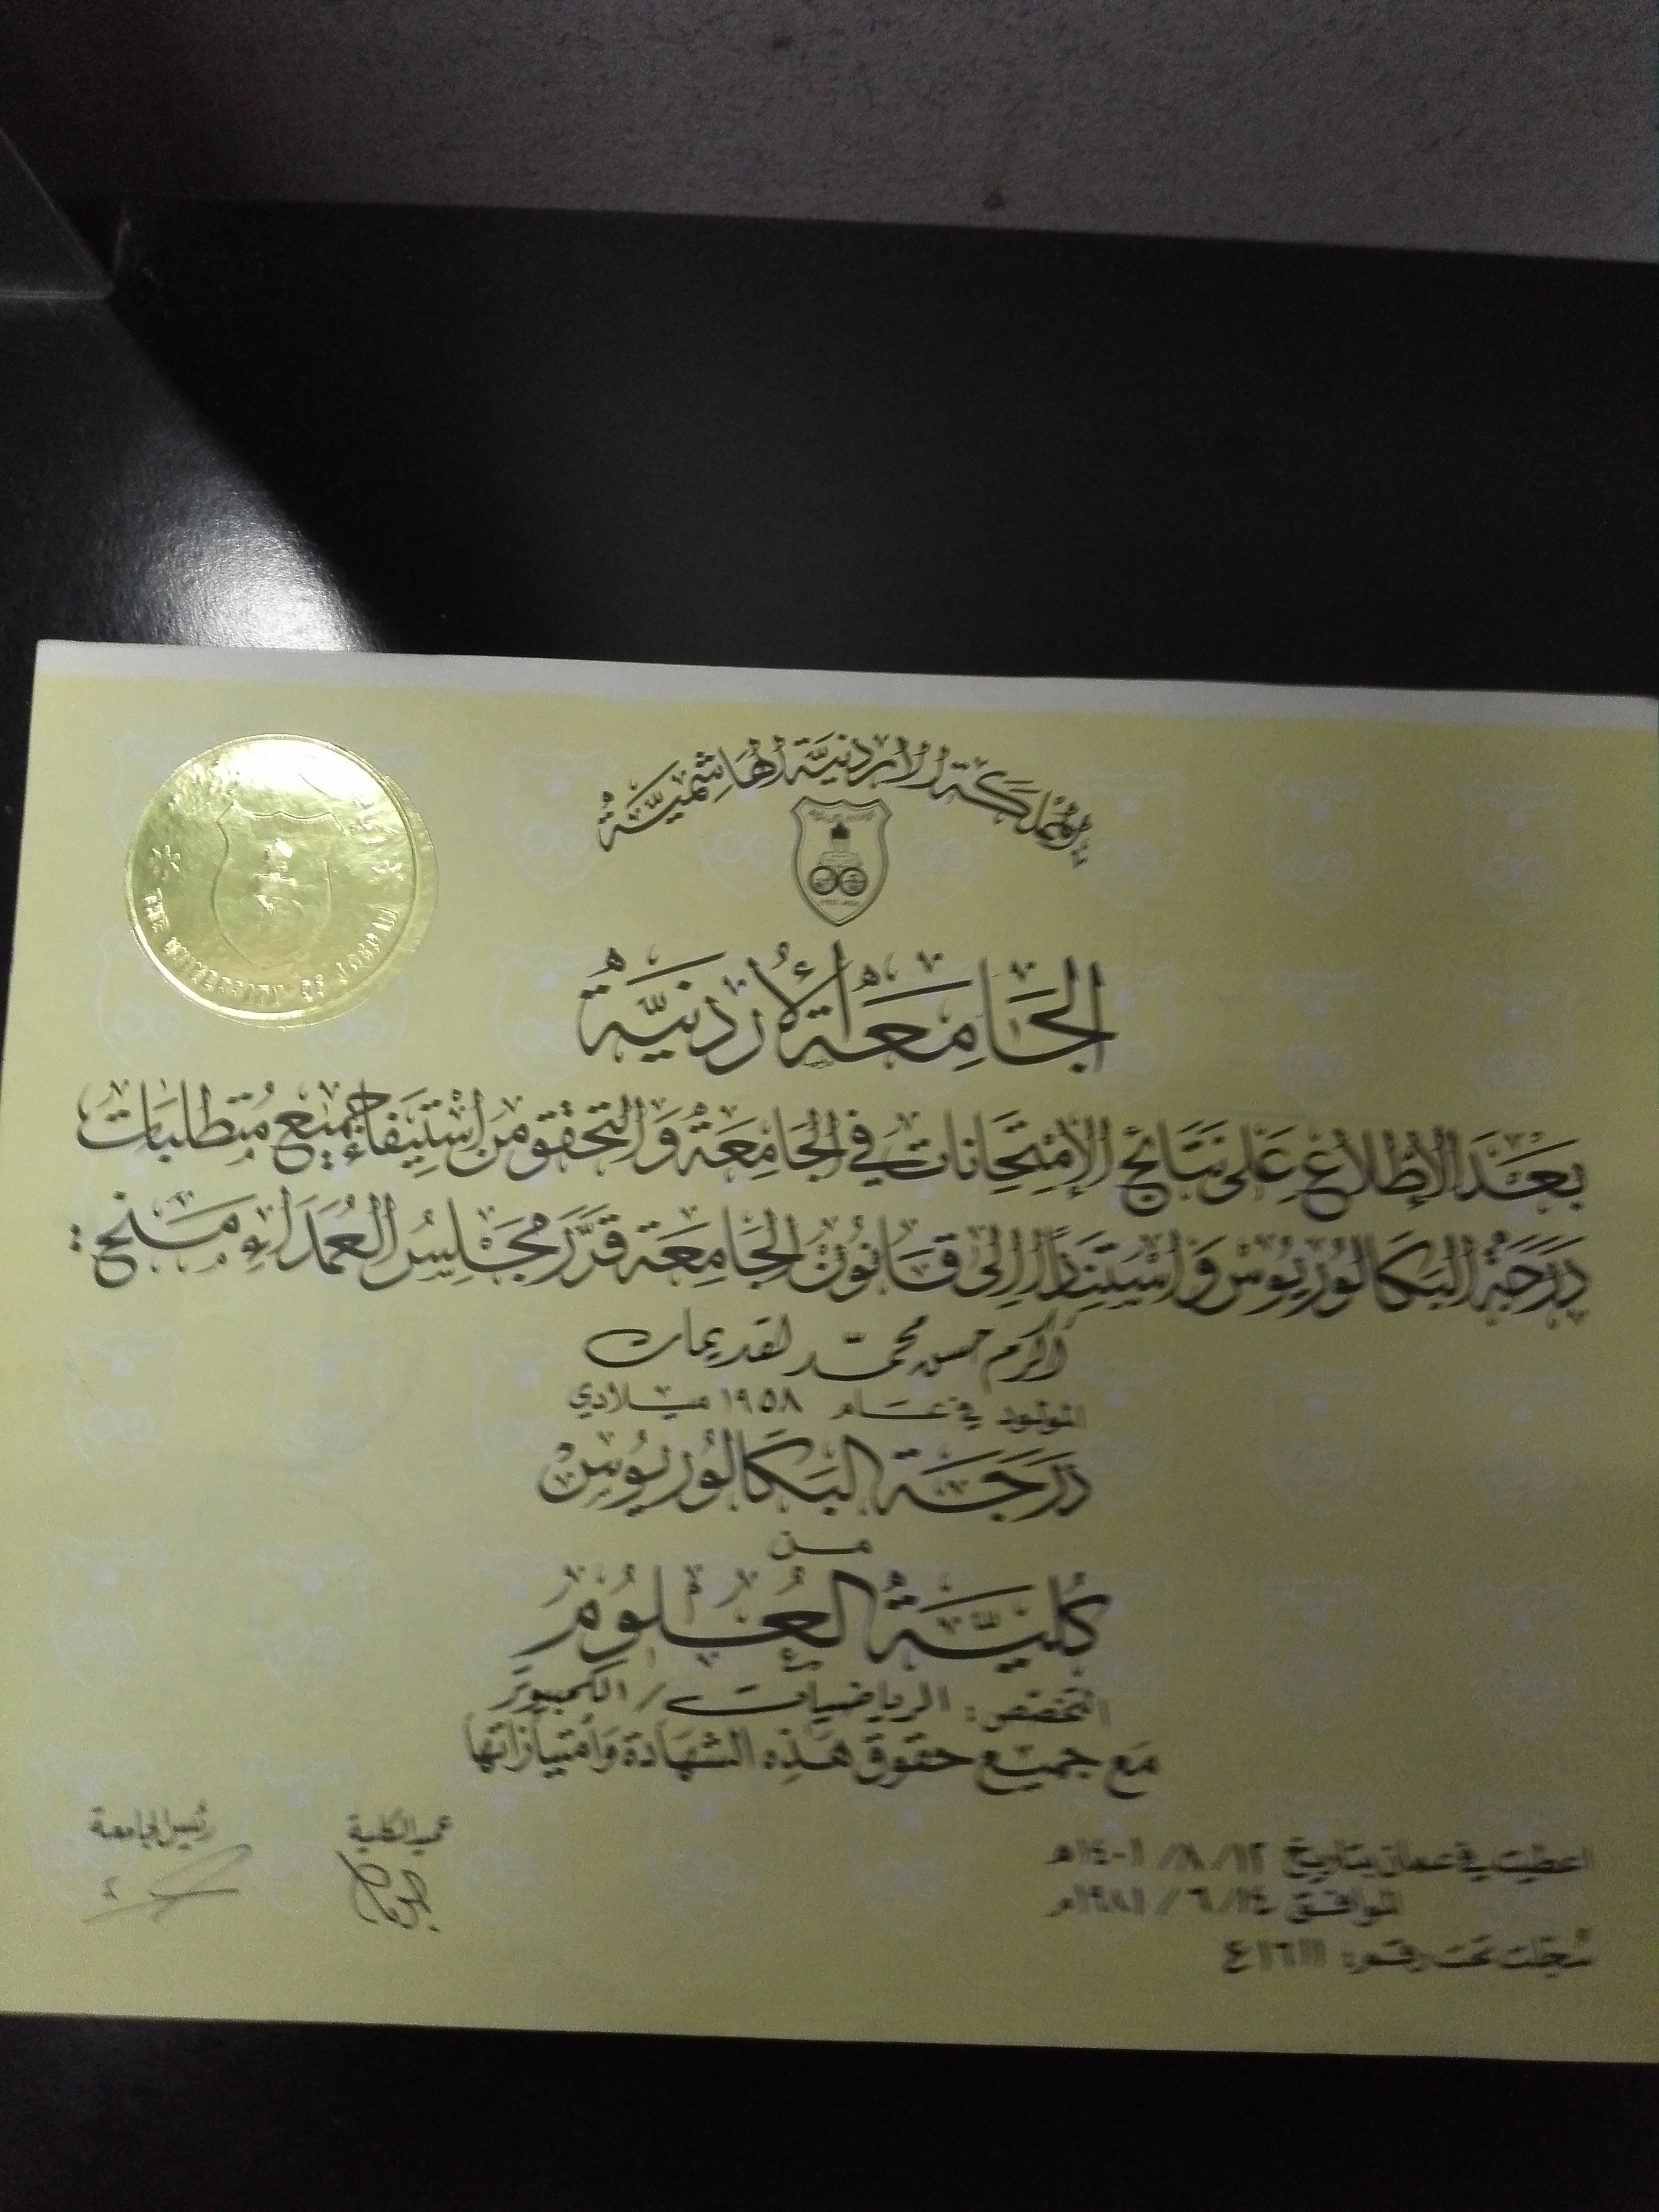 المملكة الأردنية الهاشمية
الجَامِعَة الأردنيَّة
بعَد الإطلاع عَلى نتَائج الإمتِحَانات في الجَامِعَة وَالتحقق من استِيفَاء جميع مُتطلبات
دَرَجَة البكَالوريُوسْ وَاسْتِنَادًا إلى قانون الجَامِعَة قرَّرَ مجَلِسُ العُمَدَاء منح:
اكرم حسن محمّد القديمات
المولود في عام ١٩٥٨ ميلادي
دَرَجَة البكَالوريُوسْ
من
كُليَّة العُلوُم
التخصص: الرياضيات / الكمبيوتر
مَع جميع حقوق هَذِه الشهَادة وَامتيازاتها
اعطيت في عمان بتاريخ ١٢/ ٨/ ١٤٠١هـ
الموافق ١٤/ ٦/ ١٩٨١م
سُجّلت تحت رقم: ١٦١١١ع
عميد الكلية
رئيس الجامعة
THE UNIVERSITY OF JORDAN